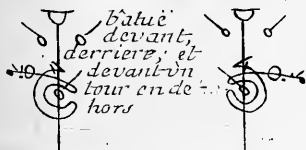 bâtuë
devant,
derriere; et
devant un
tour en de-
hors